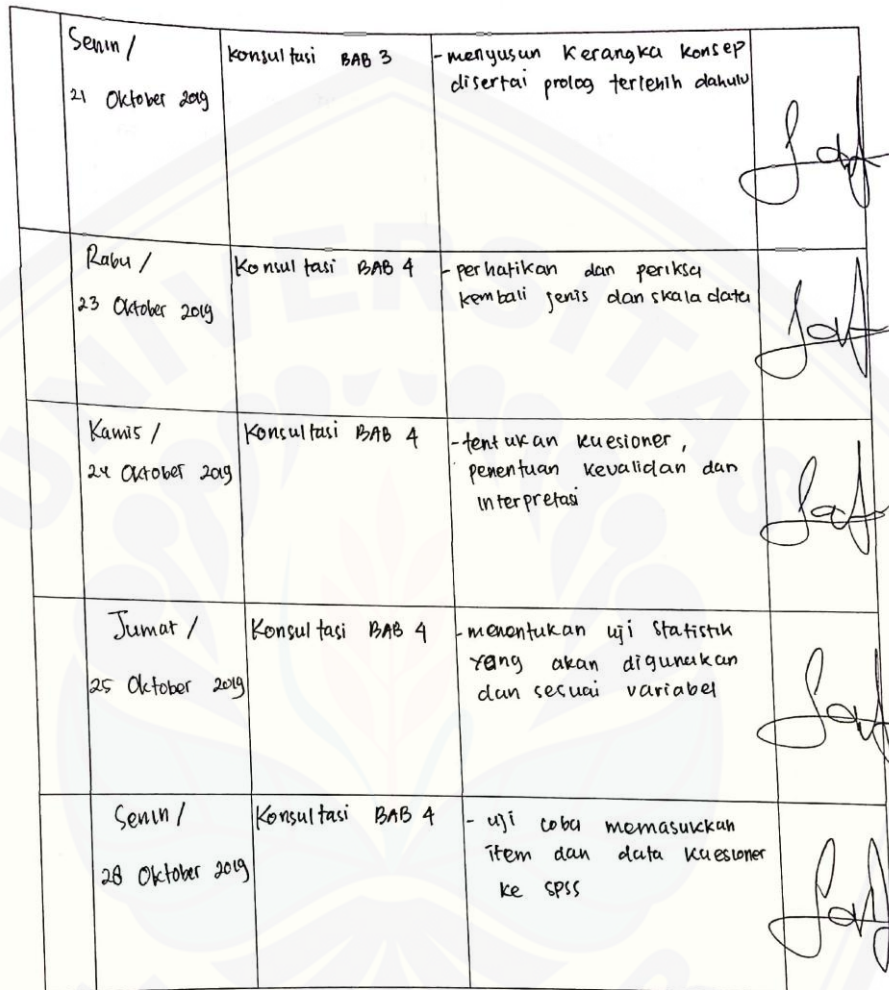 Senin /
21 Oktober 2019
konsultasi BAB 3
- menyusun kerangka konsep
disertai prolog terlebih dahulu
Rabu /
23 Oktober 2019
Konsultasi BAB 4
- perhatikan dan periksa
kembali jenis dan skala data
Kamis /
24 Oktober 2019
Konsultasi BAB 4
- tentukan kuesioner,
penentuan kevalidan dan
interpretasi
Jumat /
25 Oktober 2019
Konsultasi BAB 4
- menentukan uji statistik
yang akan digunakan
dan sesuai variabel
Senin /
28 Oktober 2019
Konsultasi BAB 4
- uji coba memasukkan
item dan data kuesioner
ke SPSS
UNIVERSITAS